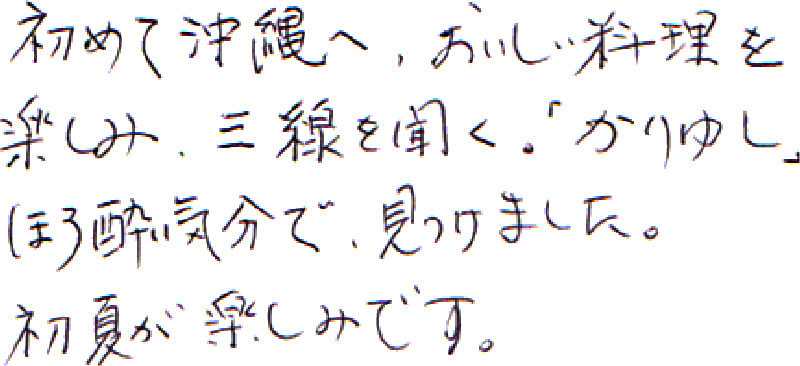 初めて沖縄へ、おいしい料理を
楽しみ、三線を聞く。「かりゆし」
ほろ酔い気分で、見つけました。
初夏が楽しみです。